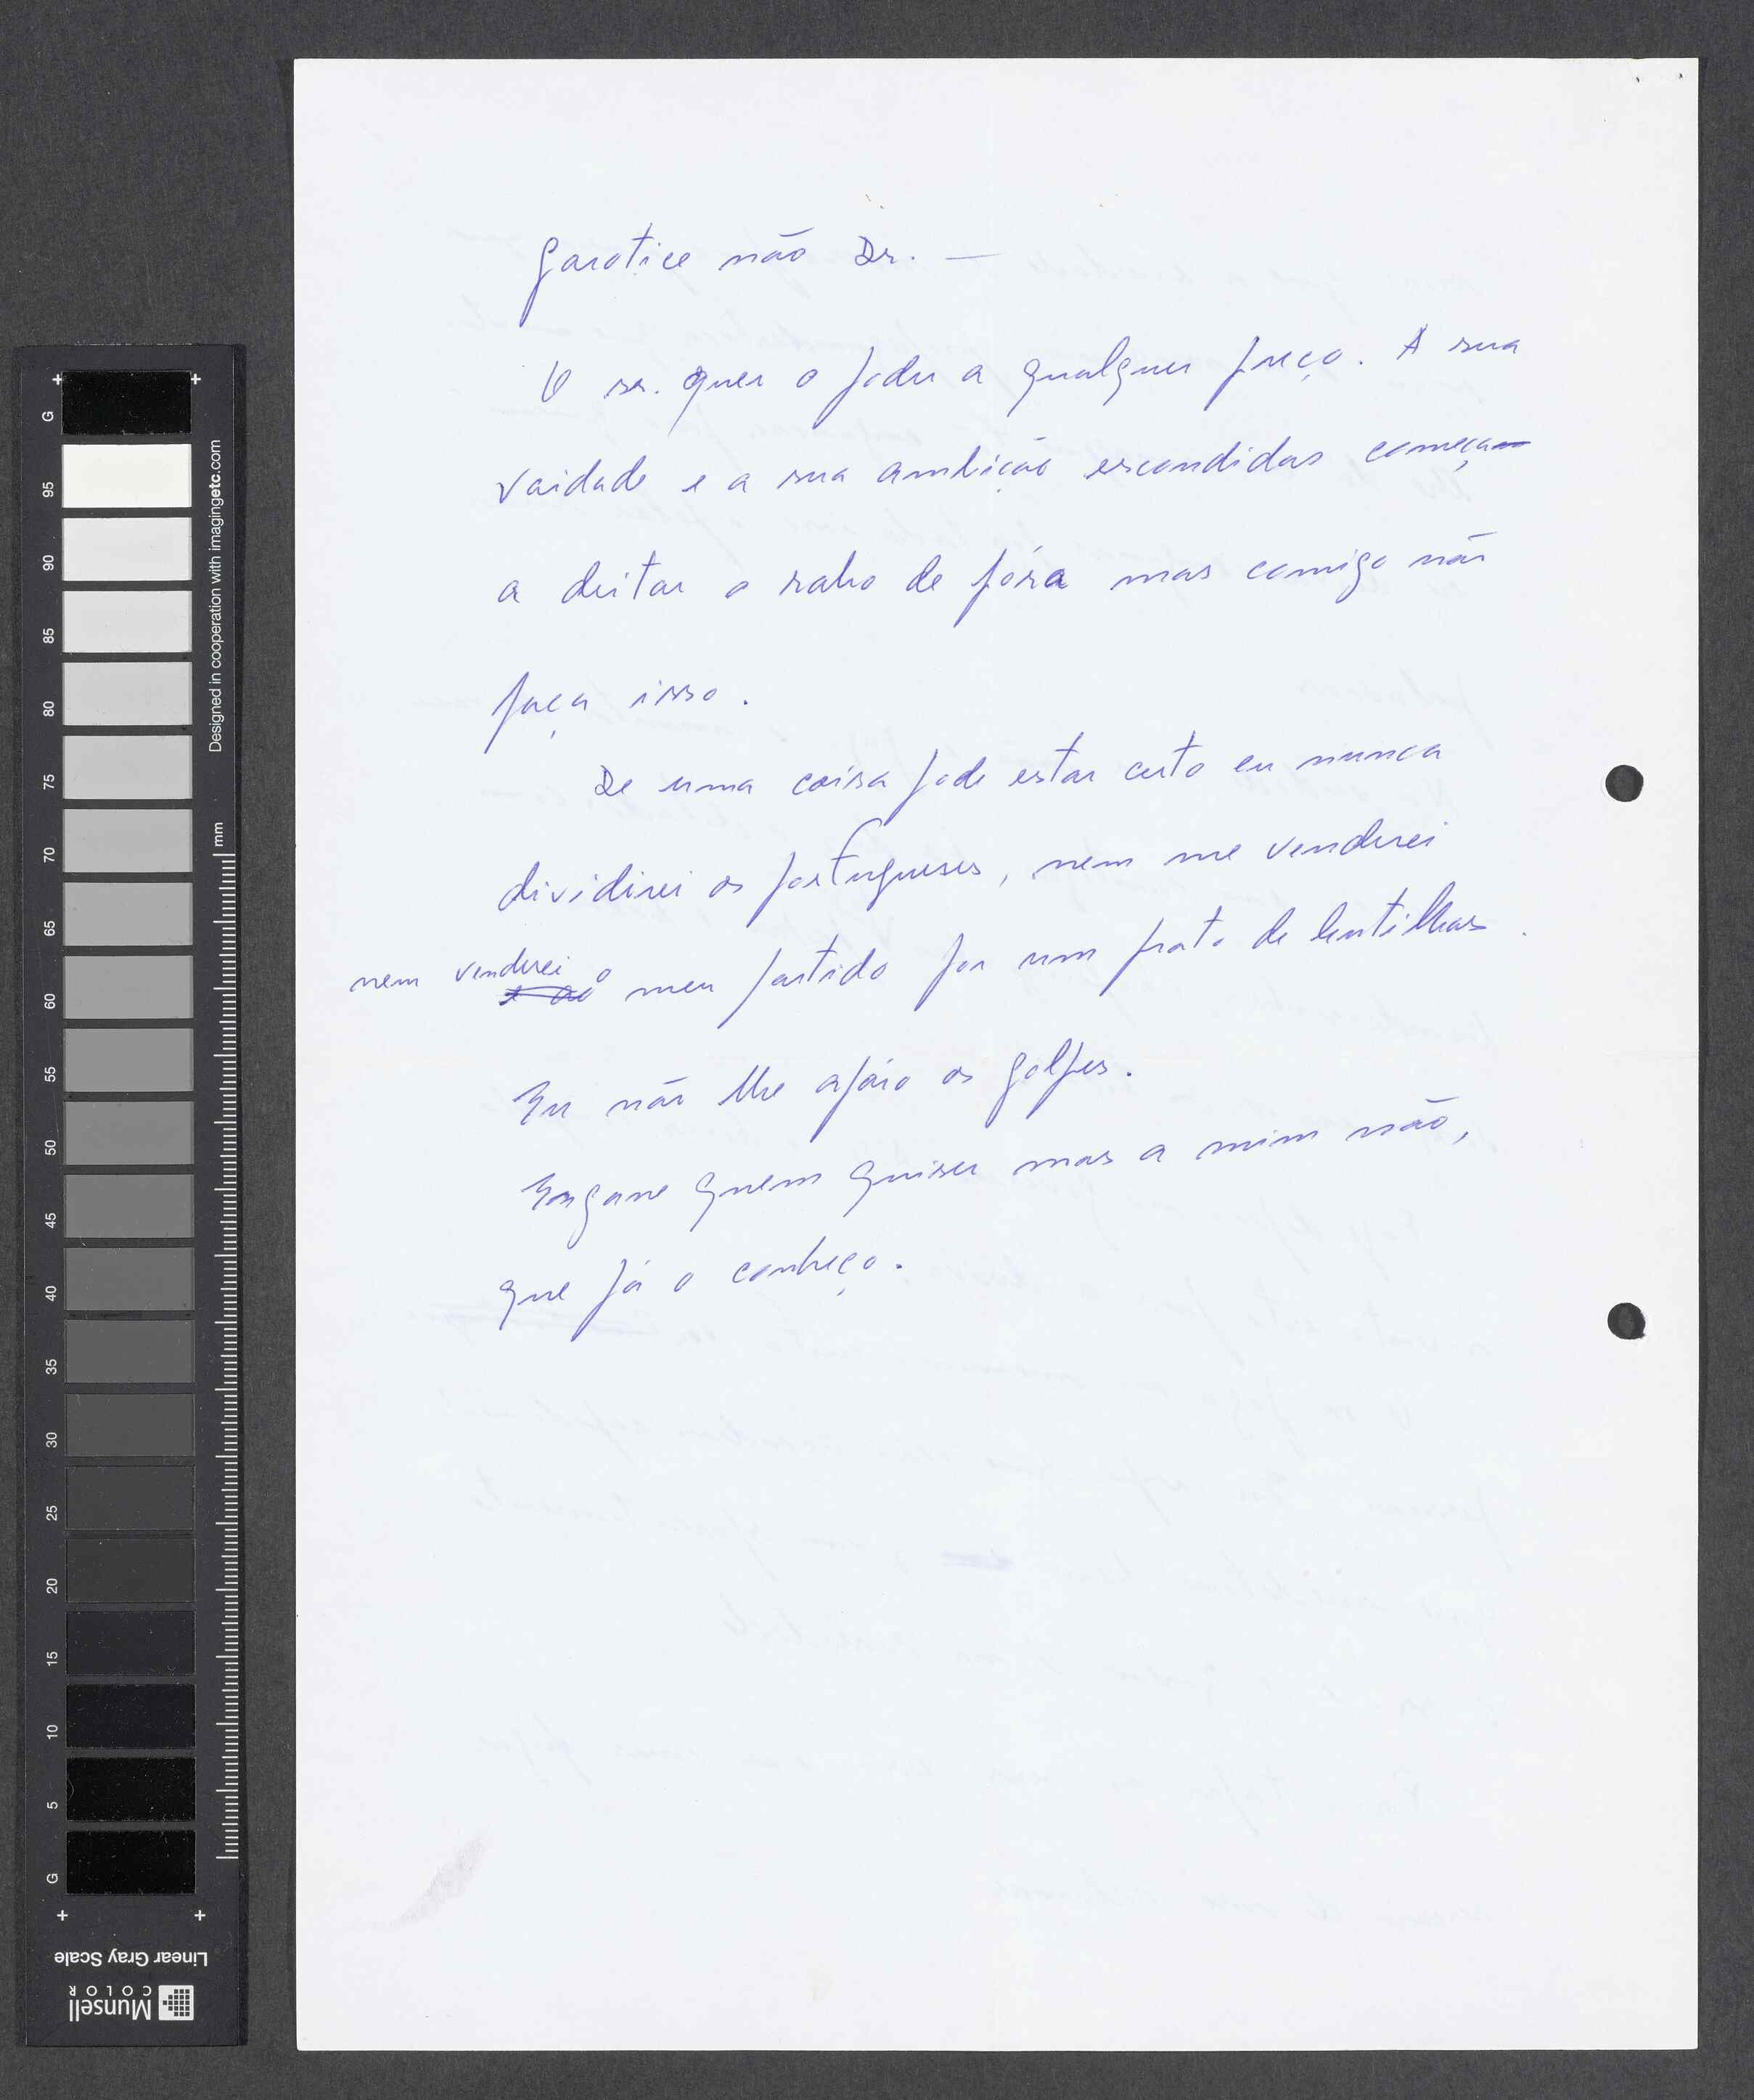 Garotice não Dr. —
O sr. quer o poder a qualquer preço. A sua
vaidade e a sua ambição escondidas começam
a deitar o rabo de fóra mas comigo não
faça isso.
De uma coisa pode estar certo eu nunca
dividirei os portugueses, nem me venderei
nem venderei o meu partido por um prato de lentilhas.
Eu não lhe apáro os golpes.
Engane quem quiser mas a mim não,
que já o conheço.
G 95 90 85 80 75 70 65 60 55 50 45 40 35 30 25 20 15 10 5 G
Designed in cooperation with imagingetc.com
mm
Linear Gray Scale
Munsell
COLOR